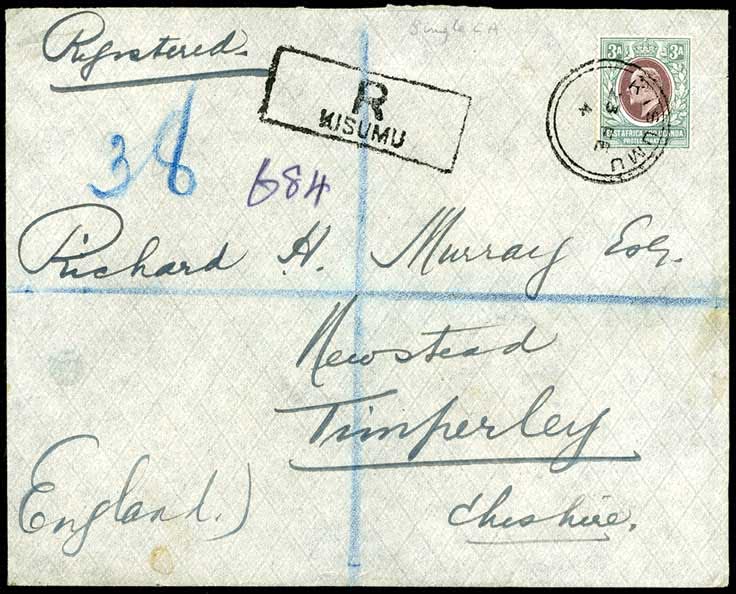 Single CA
Registered.
R
KISUMU
3A 3A
EAST AFRICA & UGANDA
PROTECTORATES
KISUMU
38
684
Richard H. Murray Esq.
Newstead
Timperley
Cheshire.
England.)